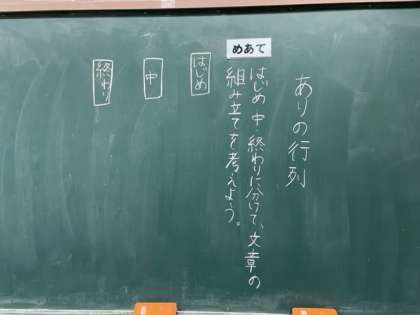 ありの行列
めあて
はじめ・中・終わりに分けて、文章の
組み立てを考えよう。
はじめ
中
終わり